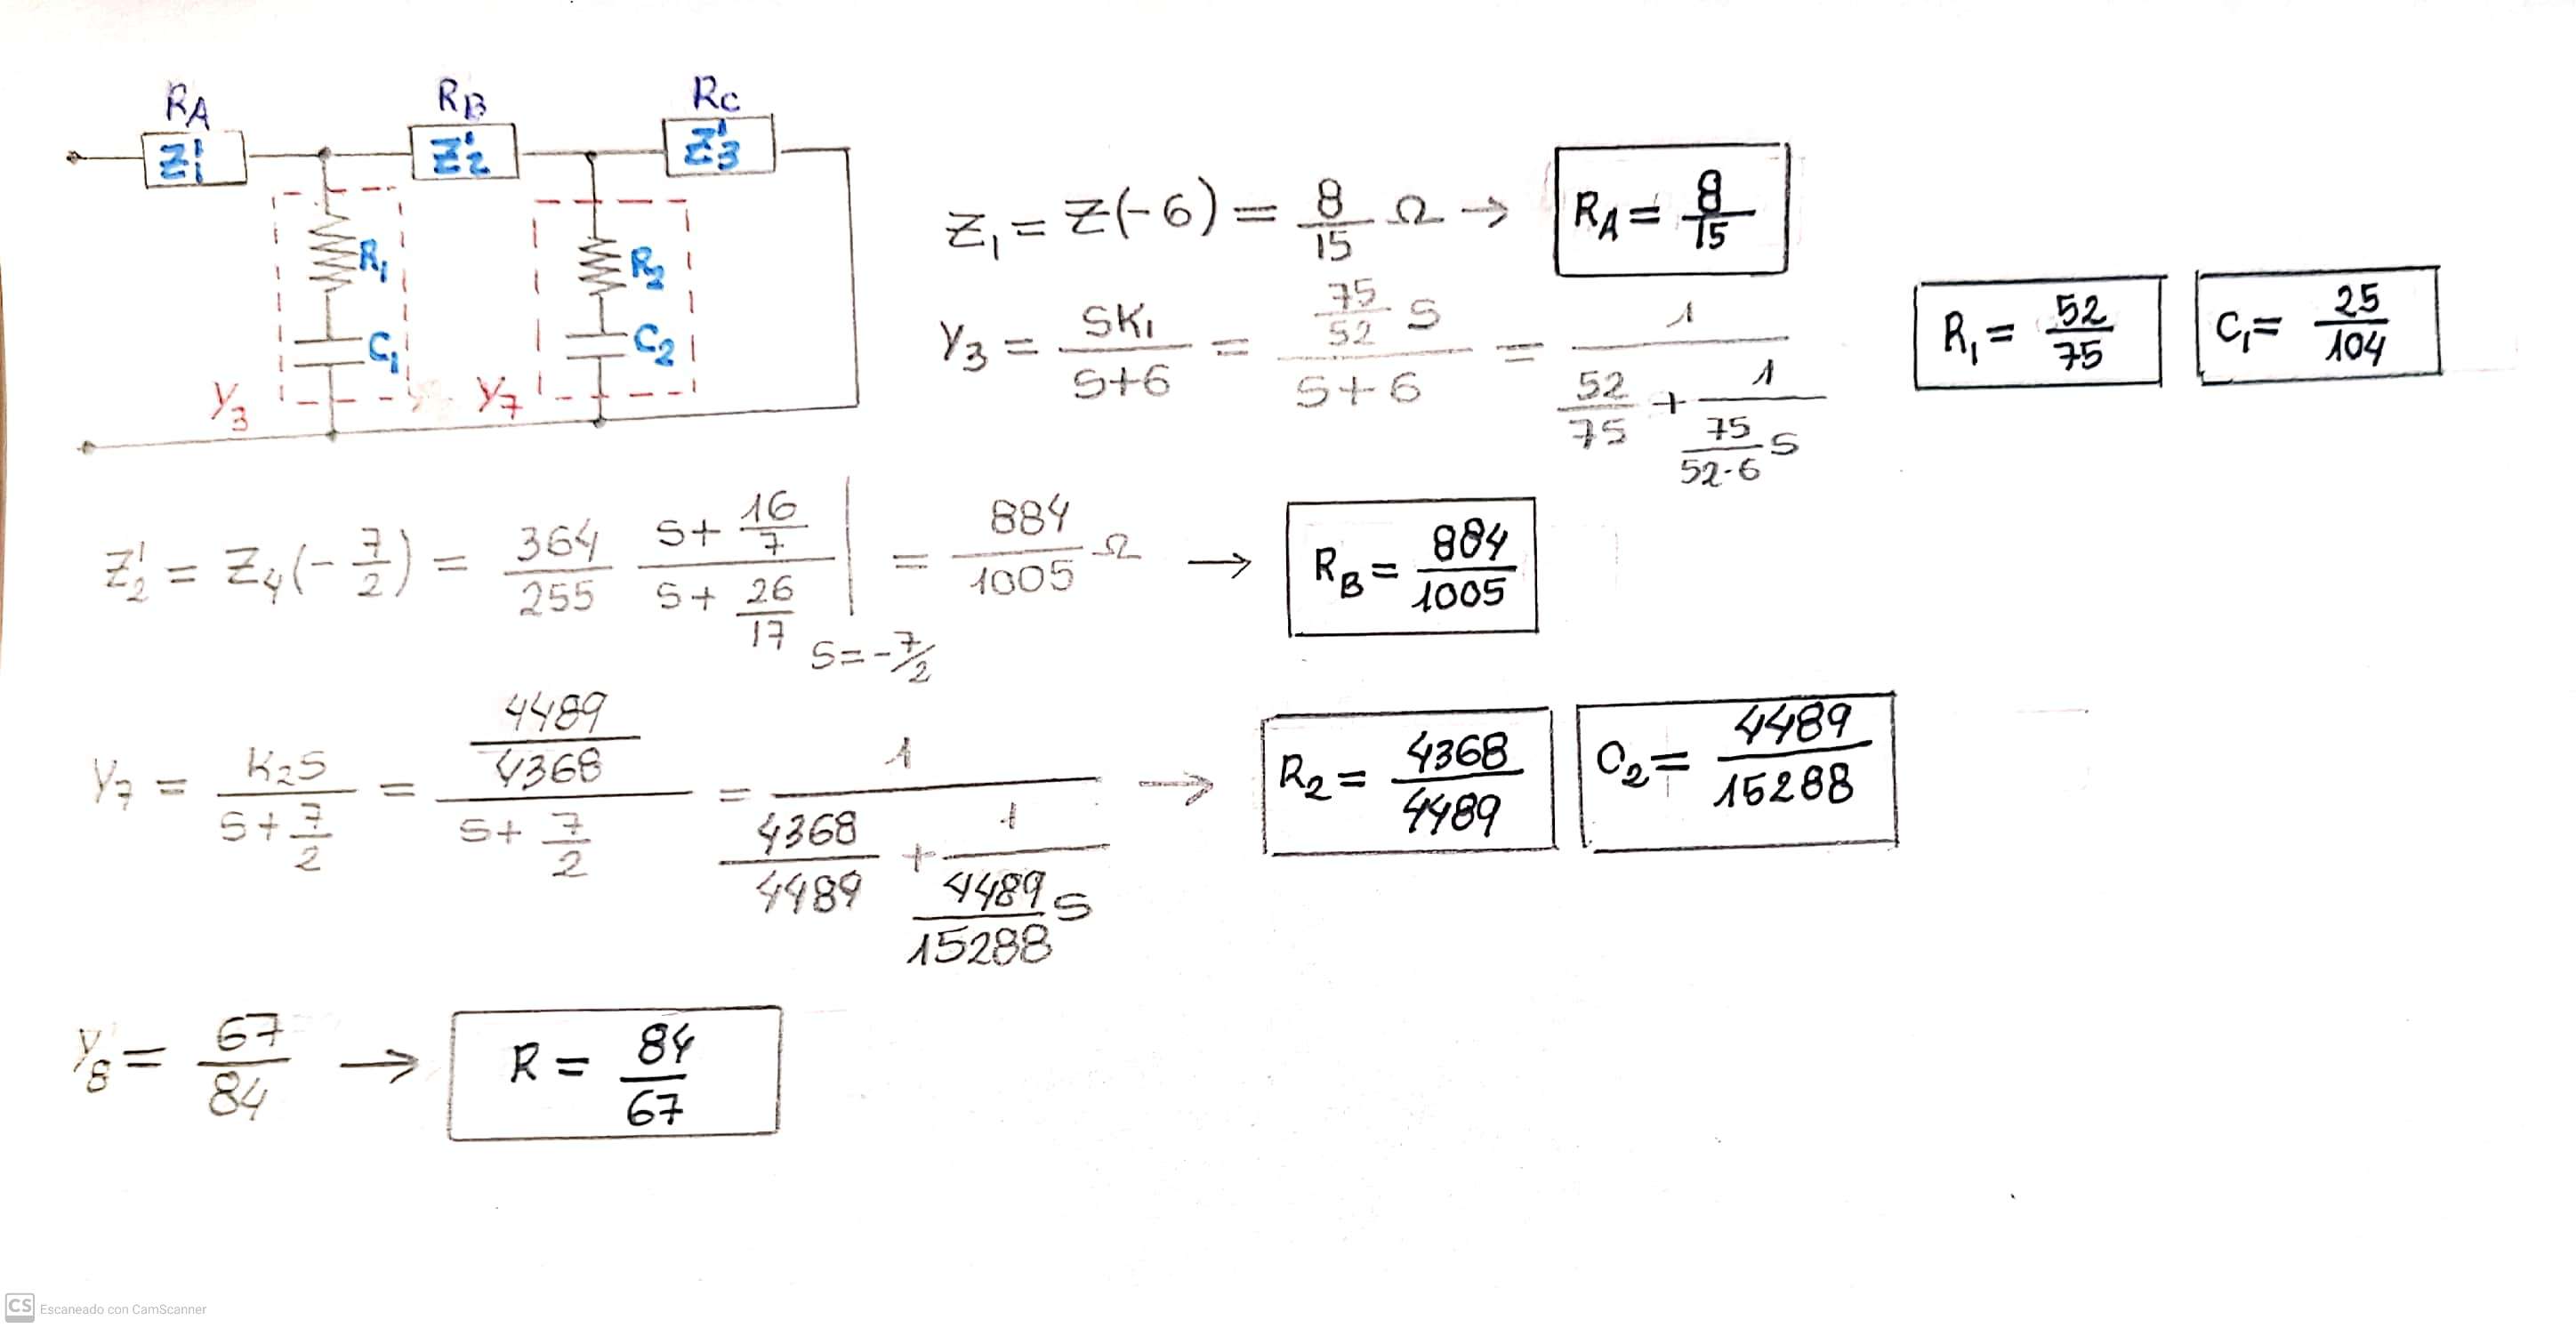 RA RB RC
Z'1 Z'2 Z'3
R1 R2
C1 C2
Y3 Y7
Z1 = Z(-6) = 8/15 Ω → RA = 8/15
Y3 = SK1/(S+6) = (75/52 S)/(S+6) = 1/(52/75 + 1/(75/(52·6) S)) R1 = 52/75 C1 = 25/104
Z'2 = Z4(-7/2) = 364/255 (S+16/7)/(S+26/17) | S=-7/2 = 884/1005 Ω → RB = 884/1005
Y7 = K2S/(S+7/2) = (4489/4368)/(S+7/2) = 1/(4368/4489 + 1/(4489/15288 S)) → R2 = 4368/4489 C2 = 4489/15288
Y8 = 67/84 → R = 84/67
CS Escaneado con CamScanner